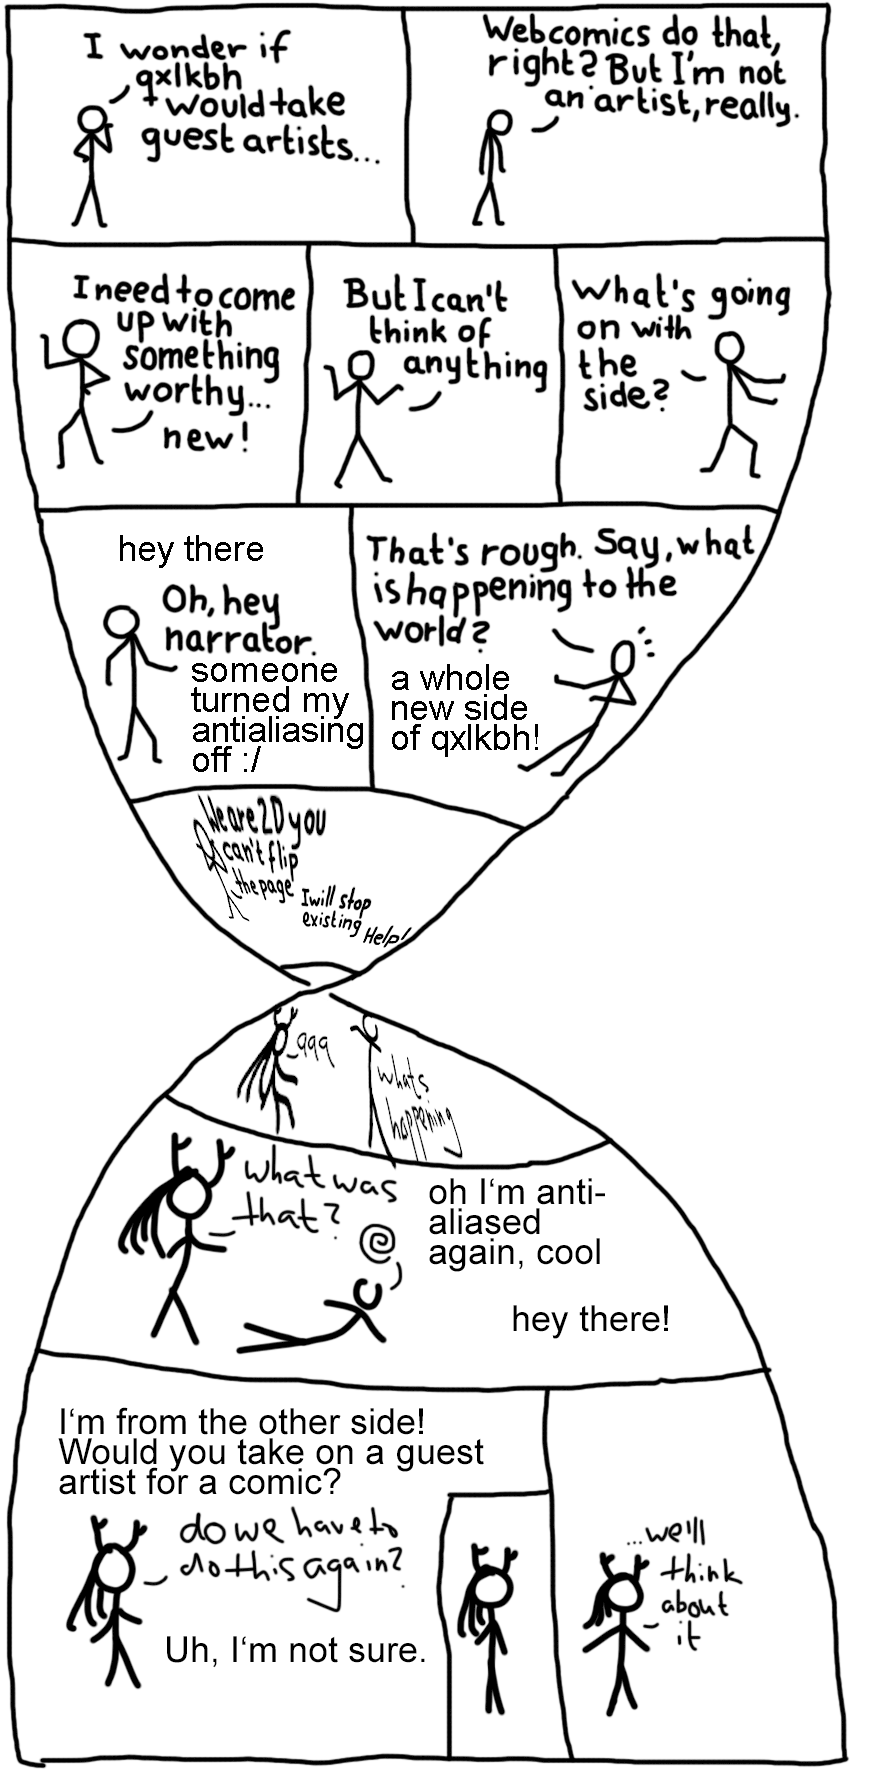 I wonder if
qxlkbh
would take
guest artists...
Webcomics do that,
right? But I'm not
an artist, really.
I need to come
up with
something
worthy...
new!
But I can't
think of
anything
What's going
on with
the
side?
hey there
Oh, hey
narrator.
someone
turned my
antialiasing
off :/
That's rough. Say, what
is happening to the
world?
a whole
new side
of qxlkbh!
We are 2D you
can't flip
the page
I will stop
existing
Help!
aaa
whats
happening
what was
that?
oh I'm anti-
aliased
again, cool
hey there!
I'm from the other side!
Would you take on a guest
artist for a comic?
do we have to
do this again?
Uh, I'm not sure.
...we'll
think
about
it